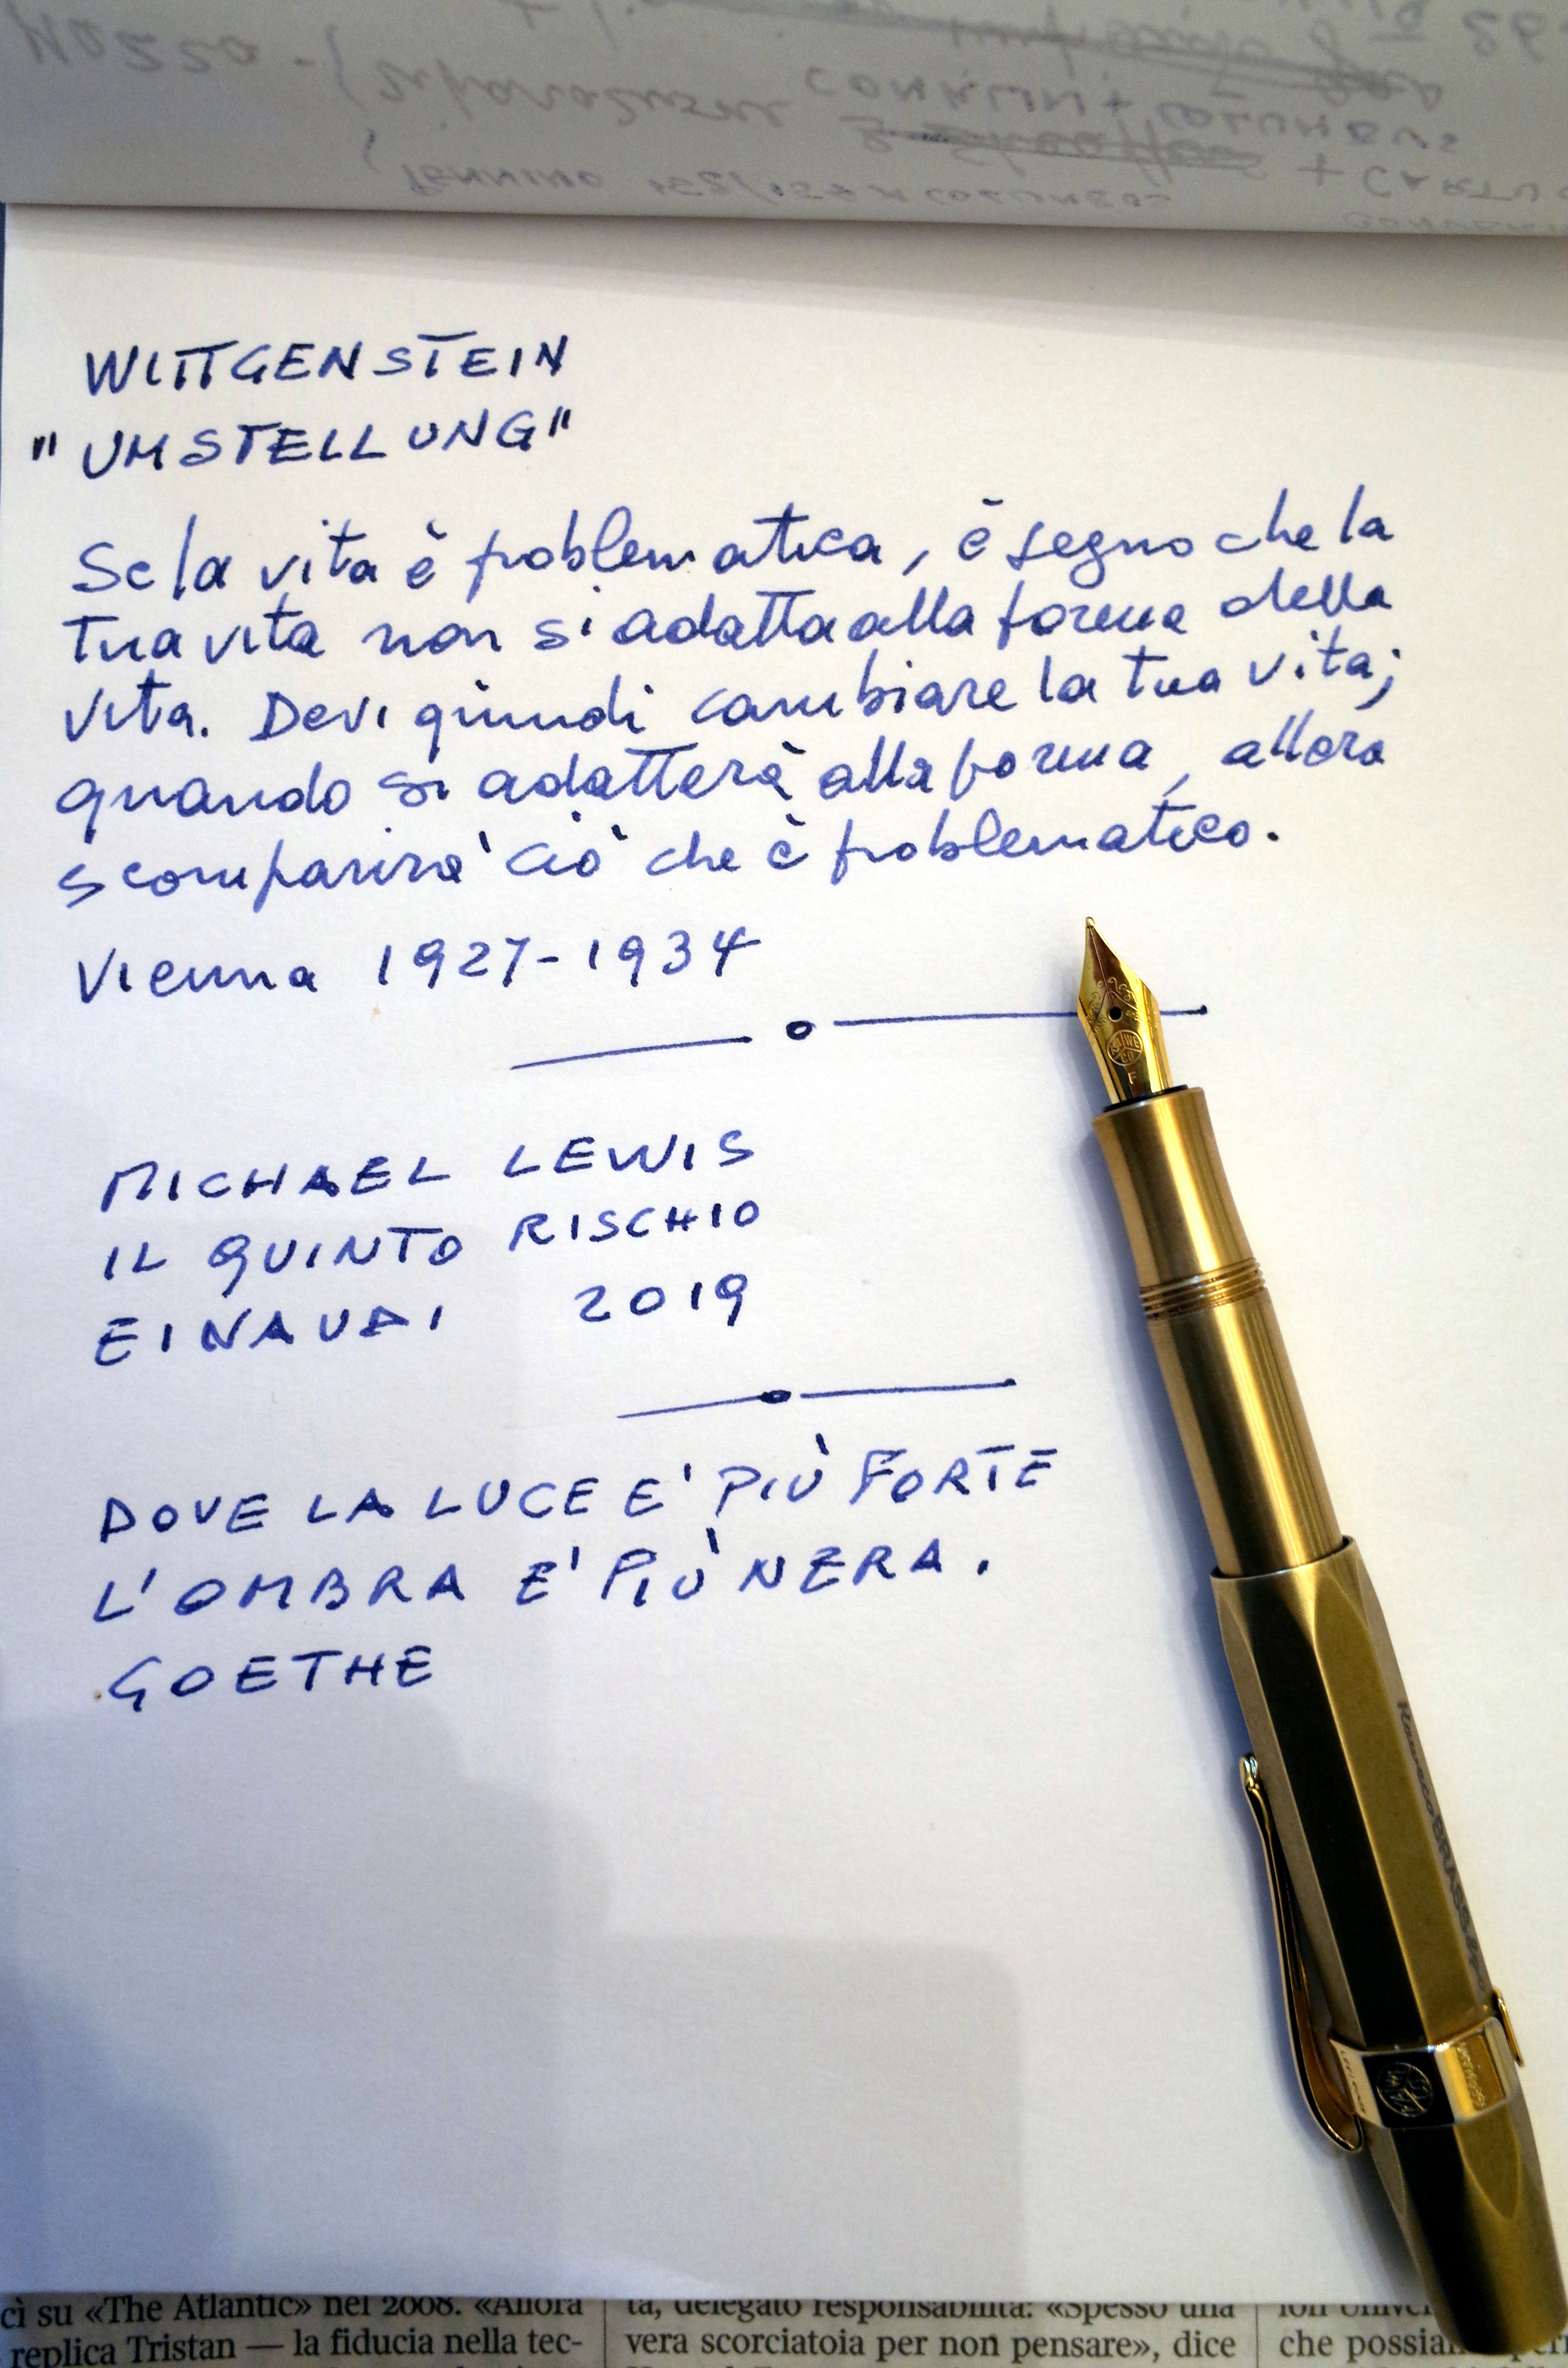 WITTGENSTEIN
"UMSTELLUNG"
Se la vita è problematica, è segno che la
tua vita non si adatta alla forma della
vita. Devi quindi cambiare la tua vita;
quando si adatterà alla forma, allora
scomparirà ciò che è problematico.
Vienna 1927-1934
MICHAEL LEWIS
IL QUINTO RISCHIO
EINAUDI 2019
DOVE LA LUCE E' PIÙ FORTE
L'OMBRA E' PIÙ NERA.
GOETHE
KawecoBRASS
KAWE
CO
F
cì su «The Atlantic» nel 2008. «Allora
replica Tristan — la fiducia nella tec-
ta, delegato responsabilità: «Spesso una
vera scorciatoia per non pensare», dice
che